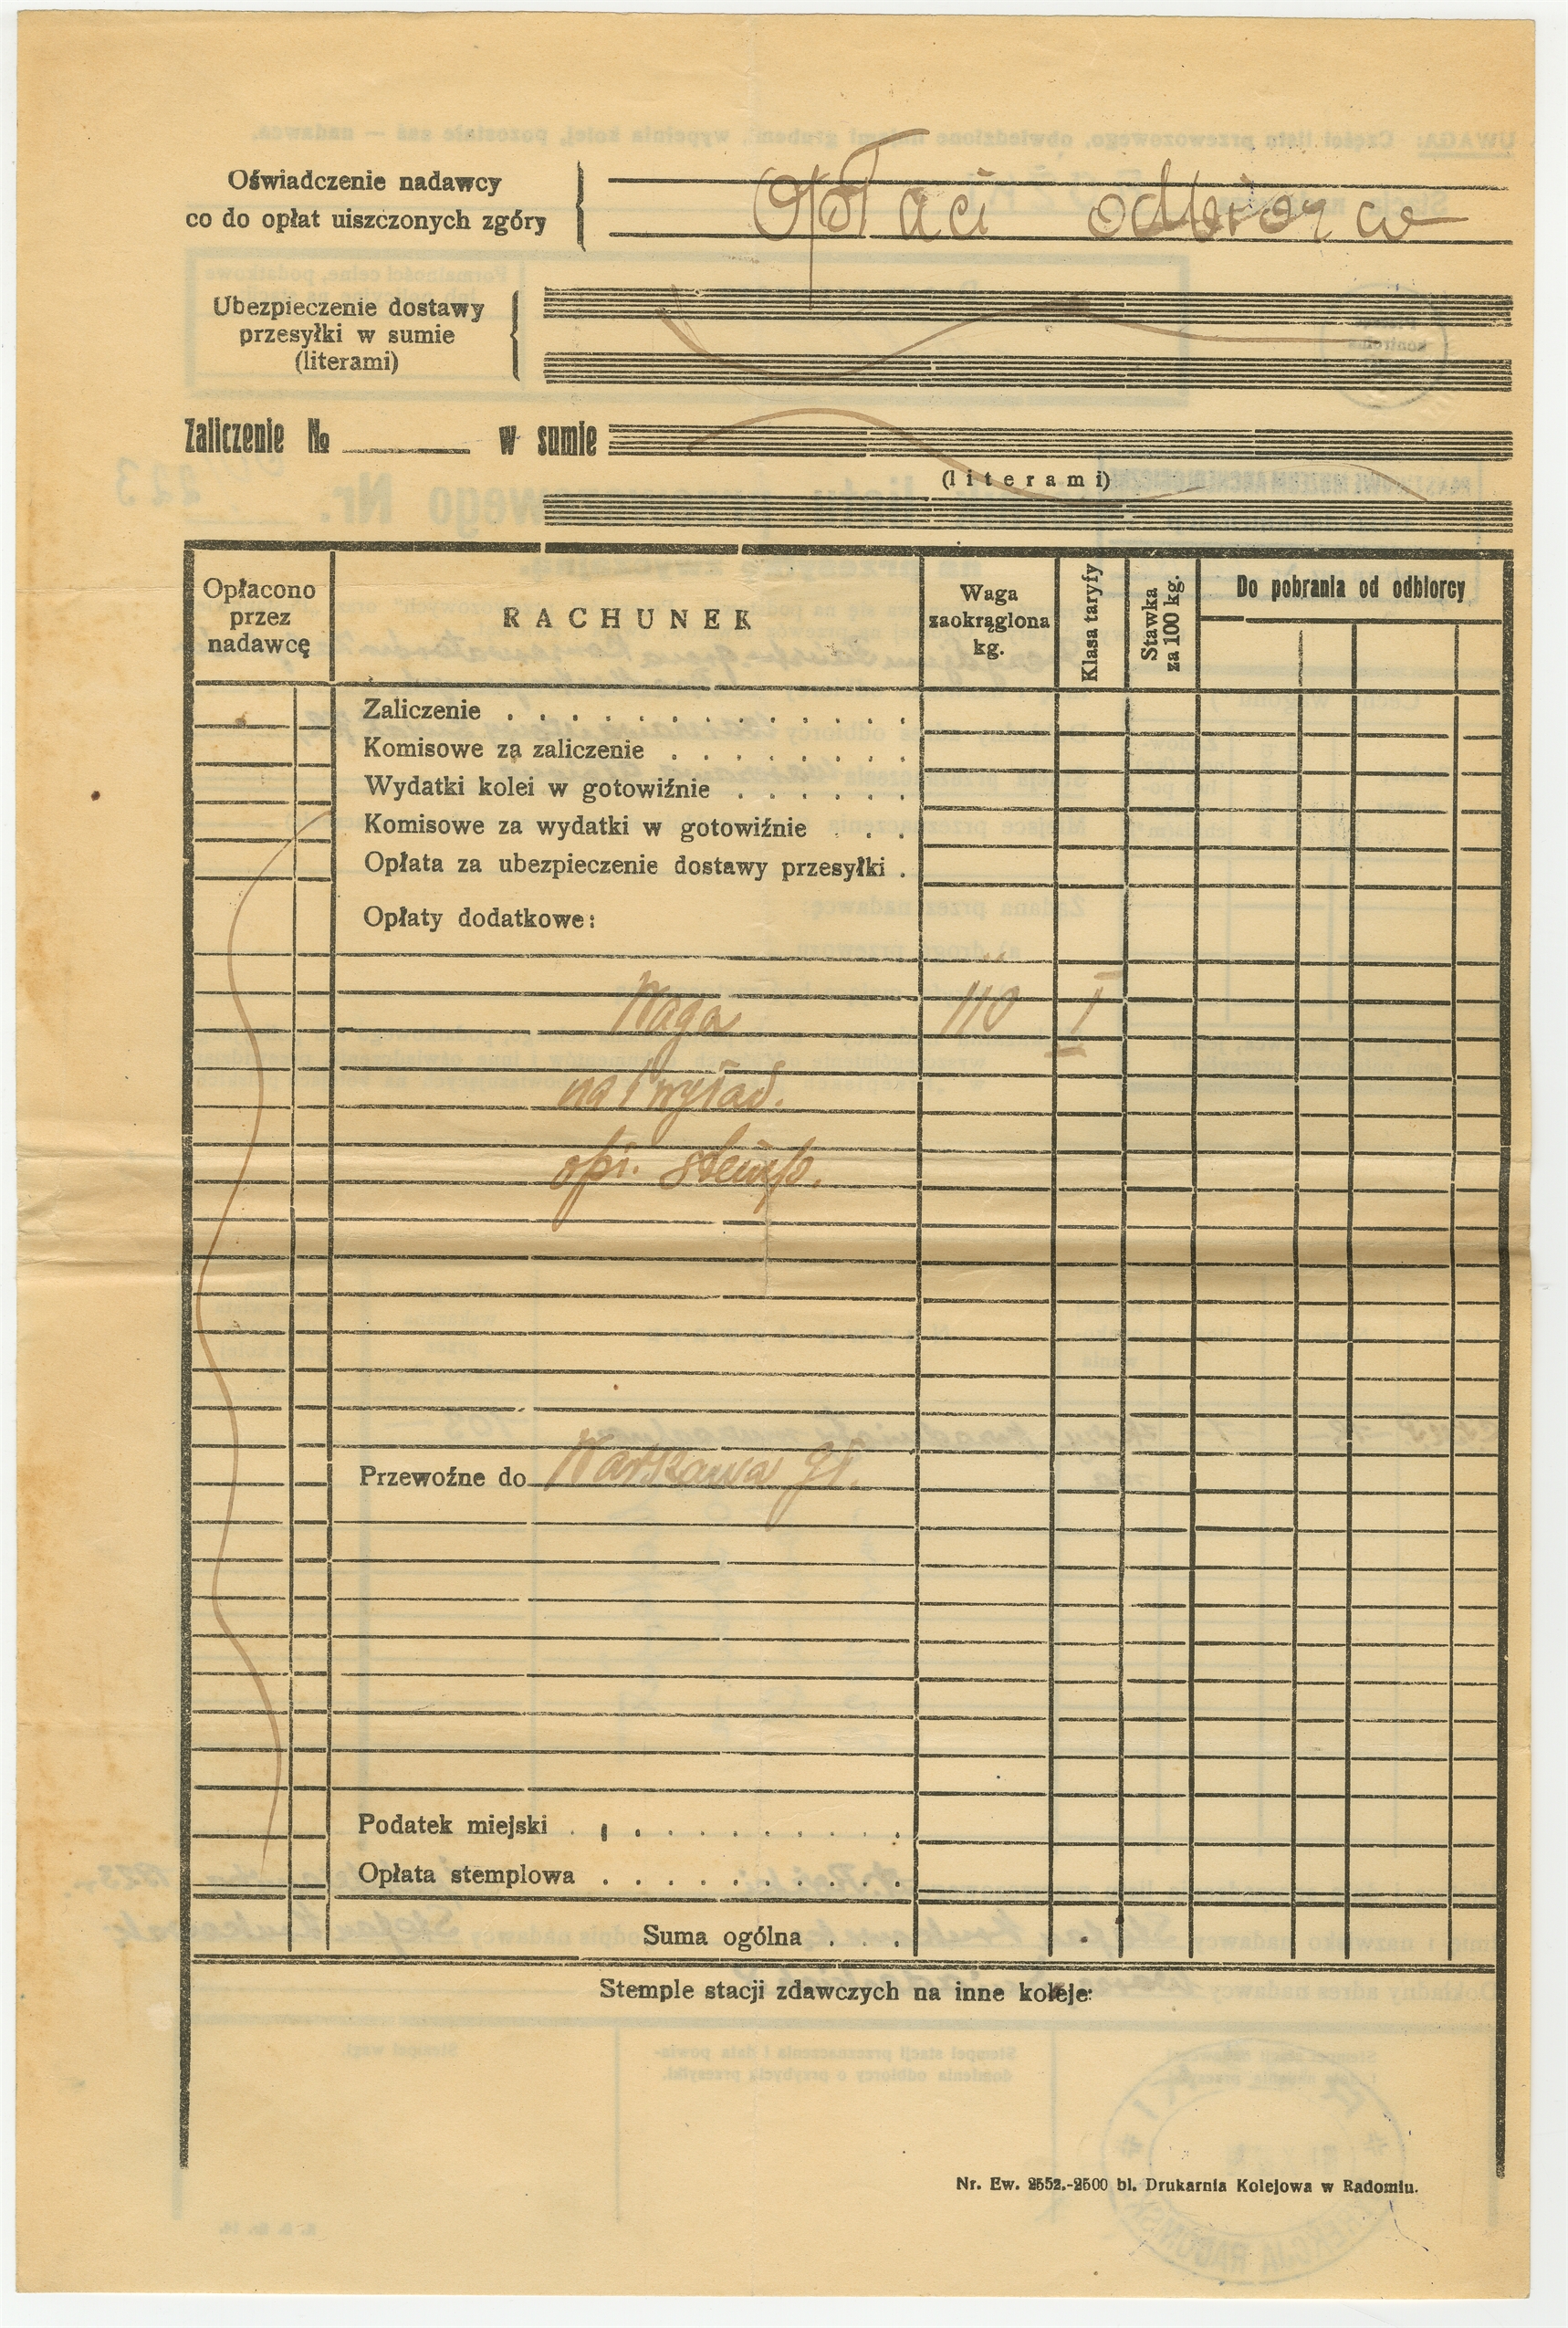 Oświadczenie nadawcy
co do opłat uiszczonych zgóry
Opłaci odbiorca
Ubezpieczenie dostawy
przesyłki w sumie
(literami)
Zaliczenie № w sumie
(literami)
Opłacono
przez
nadawcę
RACHUNEK
Waga
zaokrąglona
kg.
Klasa taryfy
Stawka
za 100 kg.
Do pobrania od odbiorcy
Zaliczenie . . . . . . . . . . . .
Komisowe za zaliczenie . . . . . . . .
Wydatki kolei w gotowiźnie . . . . . .
Komisowe za wydatki w gotowiźnie . . .
Opłata za ubezpieczenie dostawy przesyłki .
Opłaty dodatkowe:
Waga 110 I
na i wyład.
opł. stemp.
Przewoźne do Warszawa Gł.
Podatek miejski . . . . . . . . . .
Opłata stemplowa . . . . . . . . . .
Suma ogólna . . .
Stemple stacji zdawczych na inne koleje:
Nr. Ew. 2552.-2500 bl. Drukarnia Kolejowa w Radomiu.